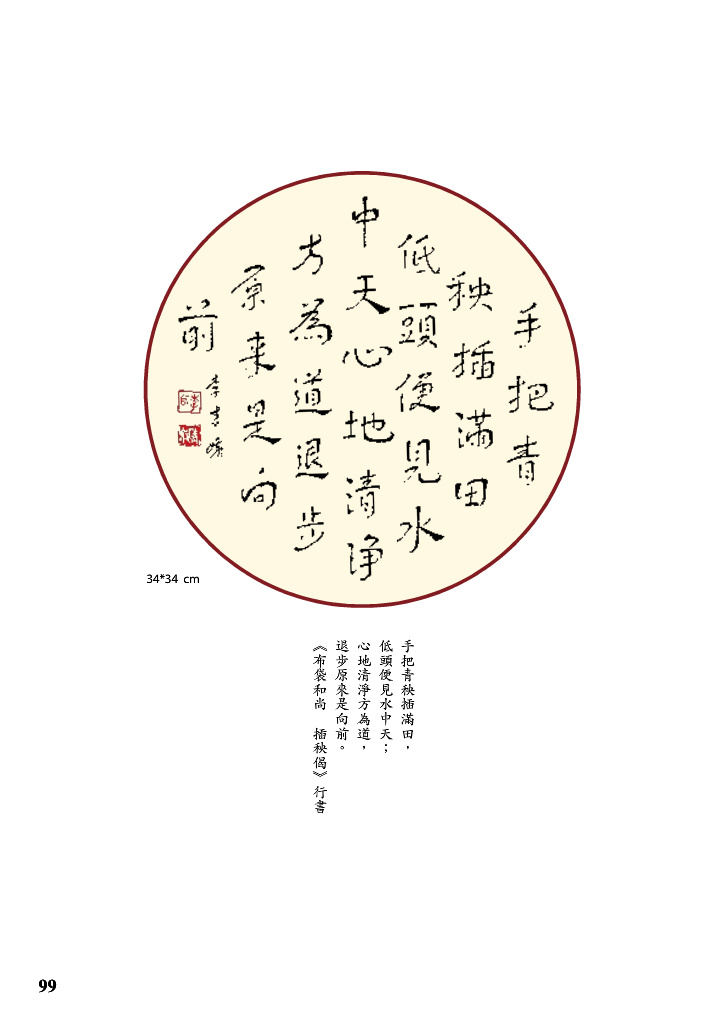 手把青
秧插滿田
低頭便見水
中天心地清淨
方為道退步
原來是向
前
李吉
34*34 cm
手把青秧插滿田，
低頭便見水中天；
心地清淨方為道，
退步原來是向前。
《布袋和尚　插秧偈》行書
99